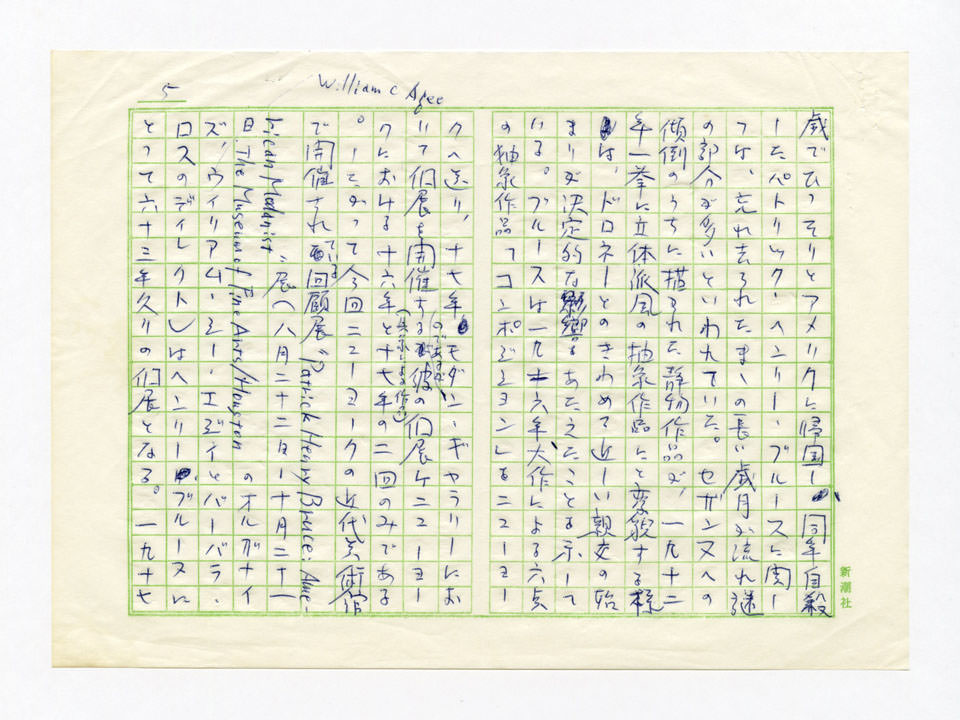 5
William C Agee
歳でひっそりとアメリカに帰国し、同年自殺
したパトリック・ヘンリー・ブルースに関し
ては、忘れ去られたまゝの長い歳月が流れ謎
の部分が多いといわれていた。セザンヌへの
傾倒のうちに描かれた静物作品が、一九十二
年一挙に立体派風の抽象作品にと変貌する様
は、ドロネーとのきわめて近しい親交の始
まりが決定的な影響をあたえたことを示して
いる。ブルースは一九十六年大作による六点
の抽象作品「コンポジション」をニューヨー
クへ送り、十七年モダン・ギャラリーにお
いて個展を開催するのであるが、彼の個展はニューヨー
クにおける十六年と十七年の二回のみである
。したがって今回ニューヨークの近代美術館
で開催されている回顧展 "Patrick Henry Bruce: Ame-
rican Modernist" 展(八月二十二日ー十月二十一
日 The Museum of Fine Arts/Houston のオルガナイ
ズ、ウィリアム・シー・エジィとバーバラ・
ロスのディレクト)はヘンリー・ブルースに
とって六十三年久りの個展となる。一九十七
新潮社